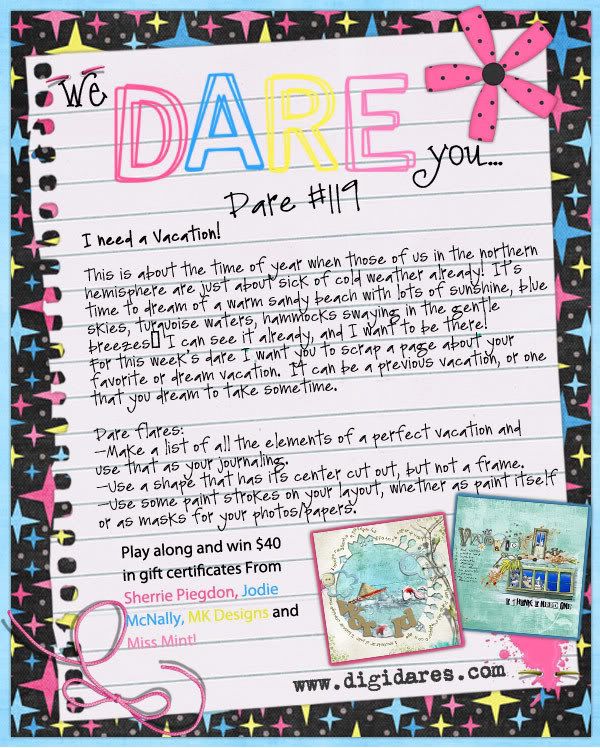 We DARE you...
Dare #119
I need a Vacation!
This is about the time of year when those of us in the northern
hemisphere are just about sick of cold weather already! It's
time to dream of a warm sandy beach with lots of sunshine, blue
skies, turquoise waters, hammocks swaying in the gentle
breezes▯ I can see it already, and I want to be there!
For this week's dare I want you to scrap a page about your
favorite or dream vacation. It can be a previous vacation, or one
that you dream to take sometime.
Dare flares:
-Make a list of all the elements of a perfect vacation and
use that as your journaling.
-Use a shape that has its center cut out, but not a frame.
-Use some paint strokes on your layout, whether as paint itself
or as masks for your photos/papers.
Play along and win $40
in gift certificates From
Sherrie Piegdon, Jodie
McNally, MK Designs and
Miss Mint!
World
I THINK I NEED ONE
www.digidares.com